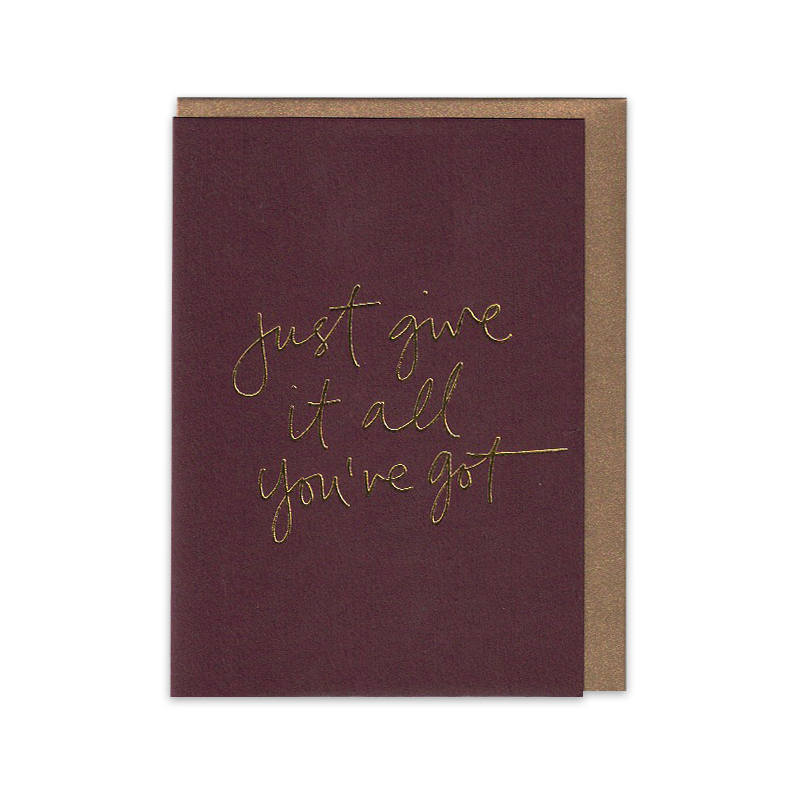 just give
it all
you've got